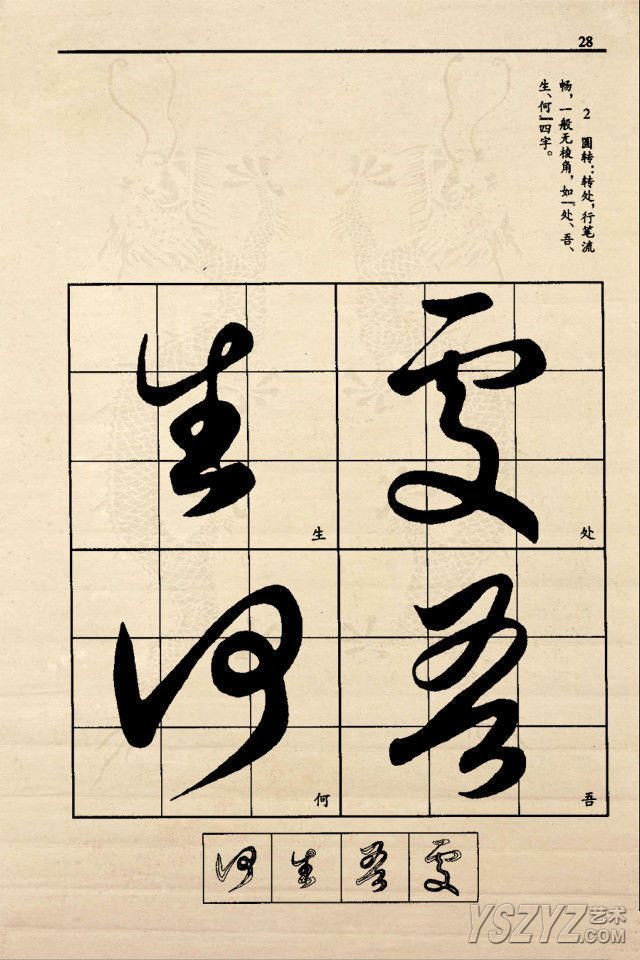 28
2 圆转：转处，行笔流
畅，一般无棱角，如「处、吾、
生、何」四字。
處
处
吾
吾
生
生
何
何
處 吾 生 何
YSZYZ艺术
.COM